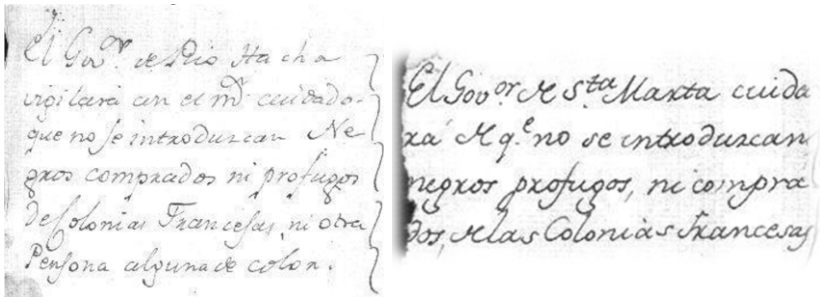 El Gov.or de Rio Hacha
vigilará con el m.r cuidado
que no se introduzcan Ne
gros comprados ni profugos
de Colonias Francesas, ni otra
Persona alguna de color.
El Gov.or de Sta Marta cuida
rá de q.e no se introduzcan
negros profugos, ni compra
dos, de las Colonias francesas